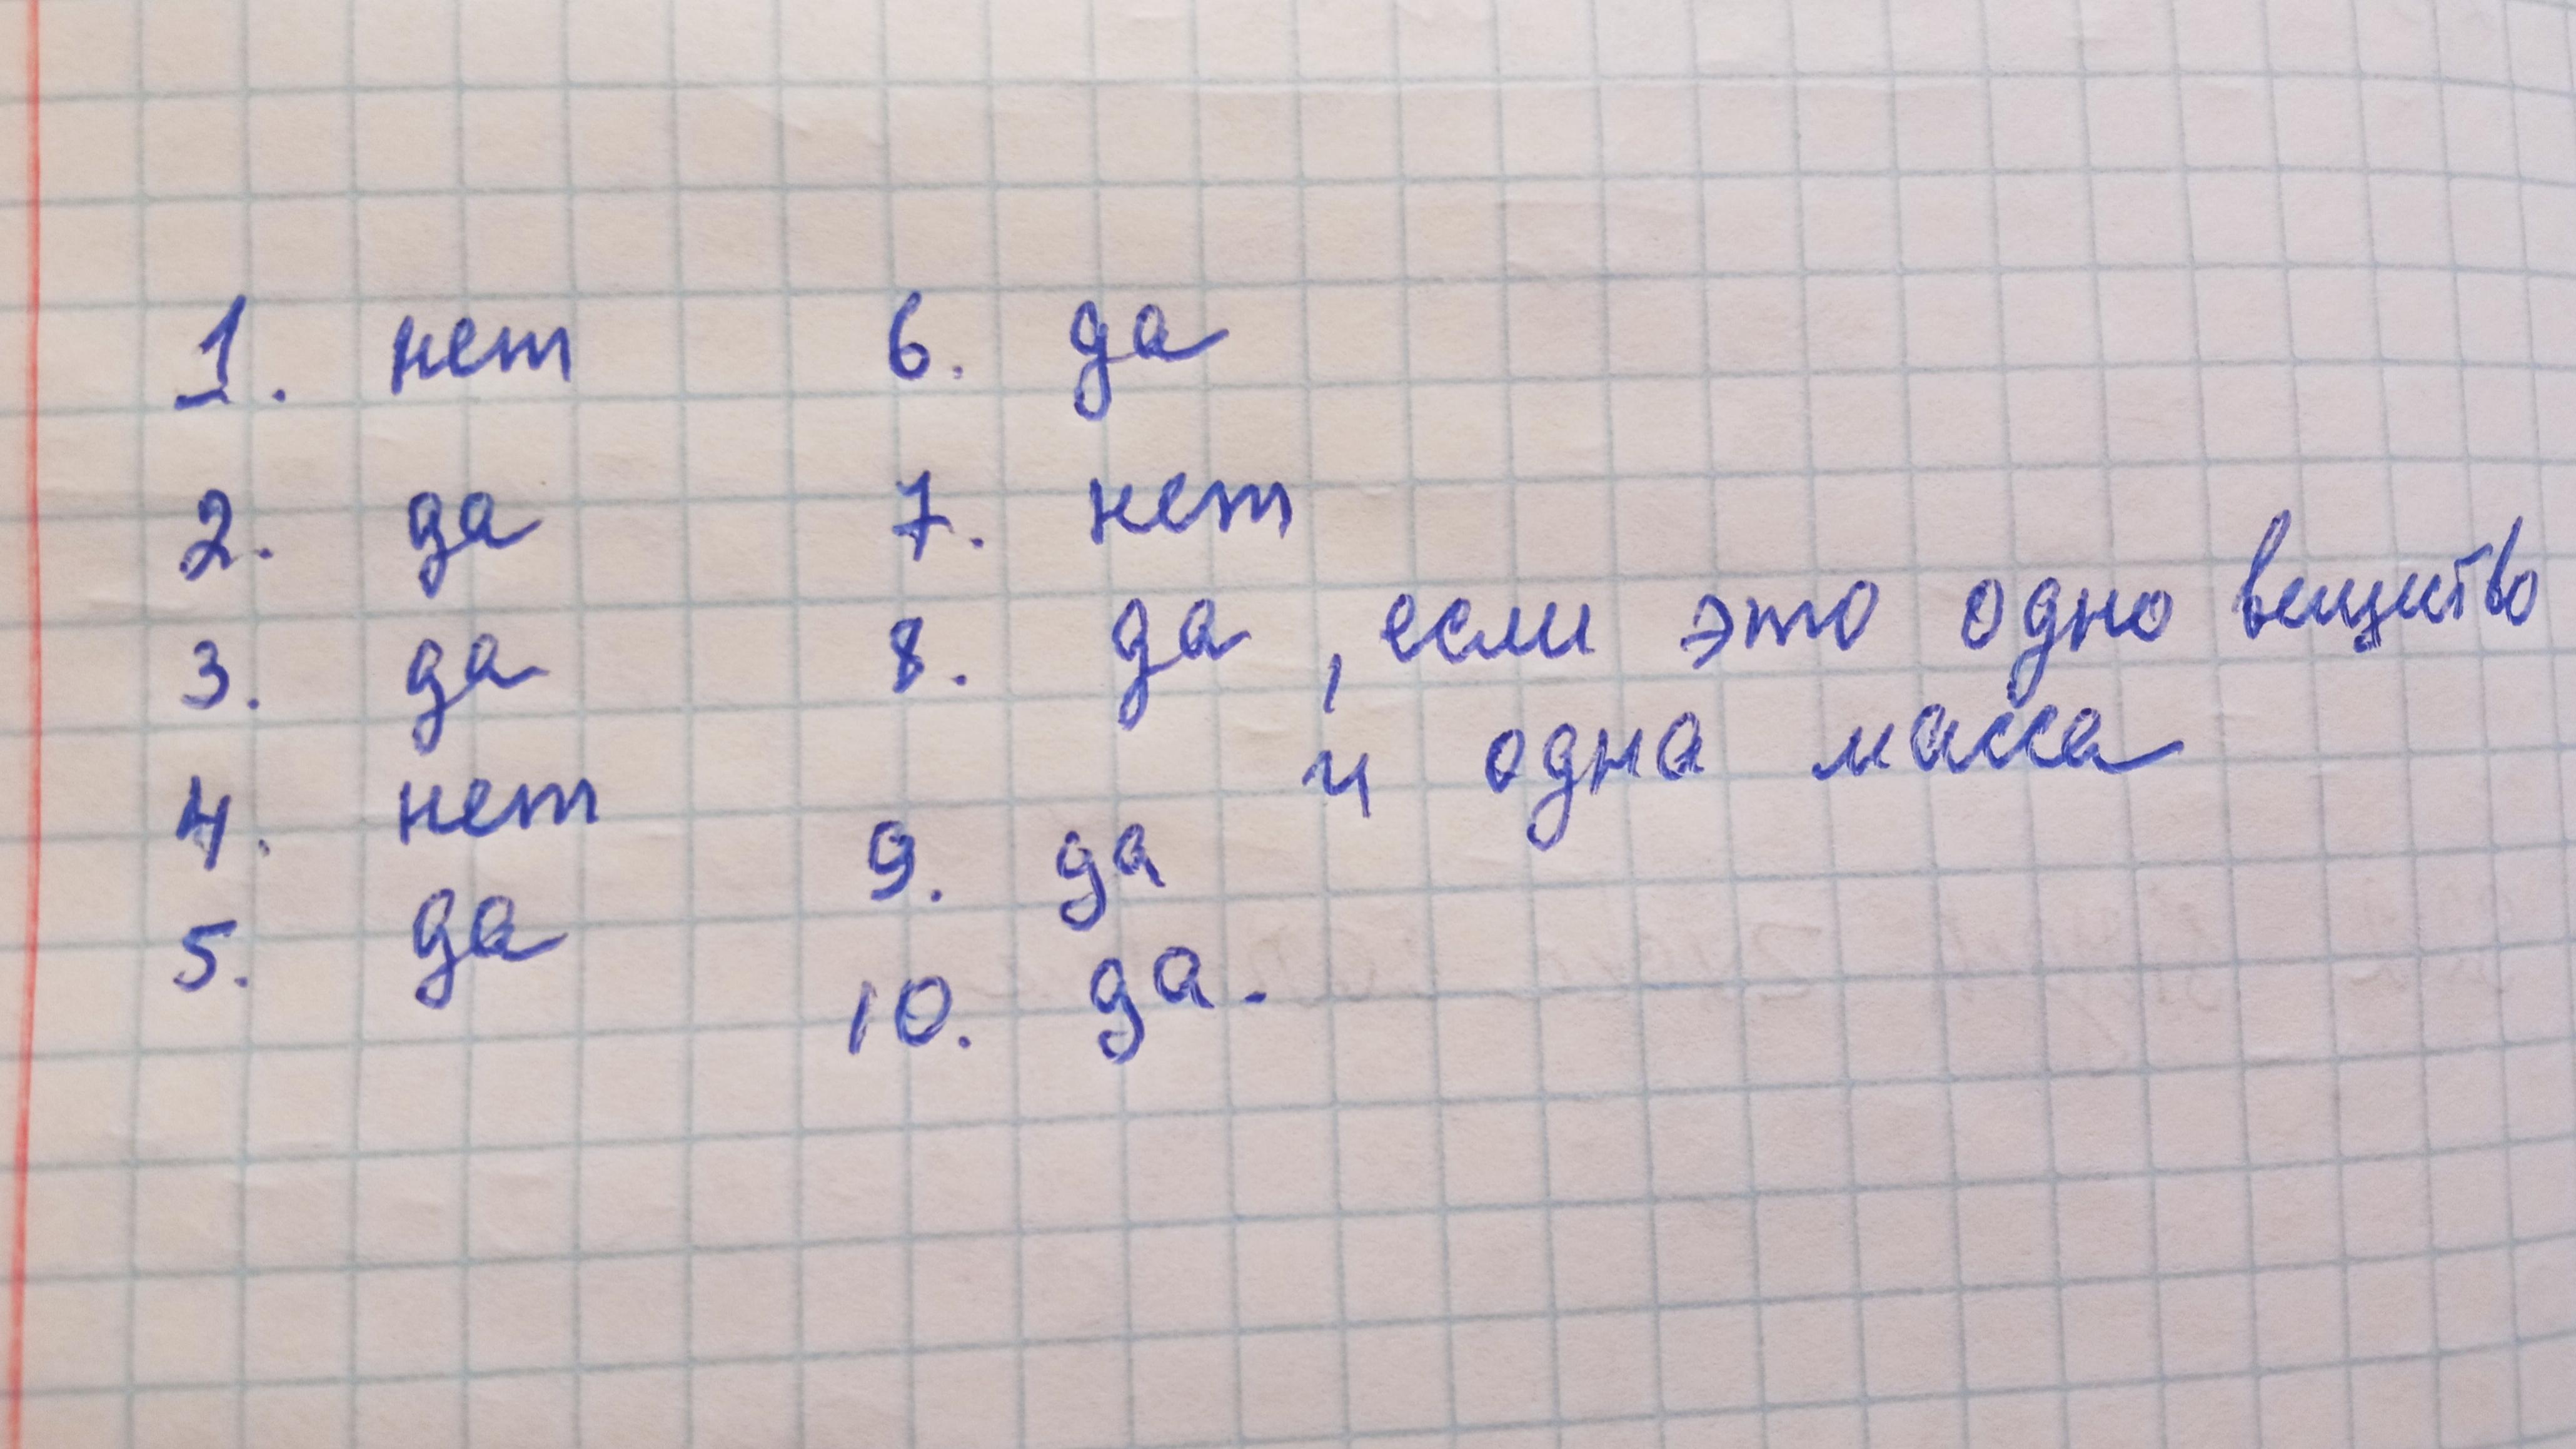 1. нет
2. да
3. да
4. нет
5. да
6. да
7. нет
8. да, если это одно вещество
и одна масса
9. да
10. да.